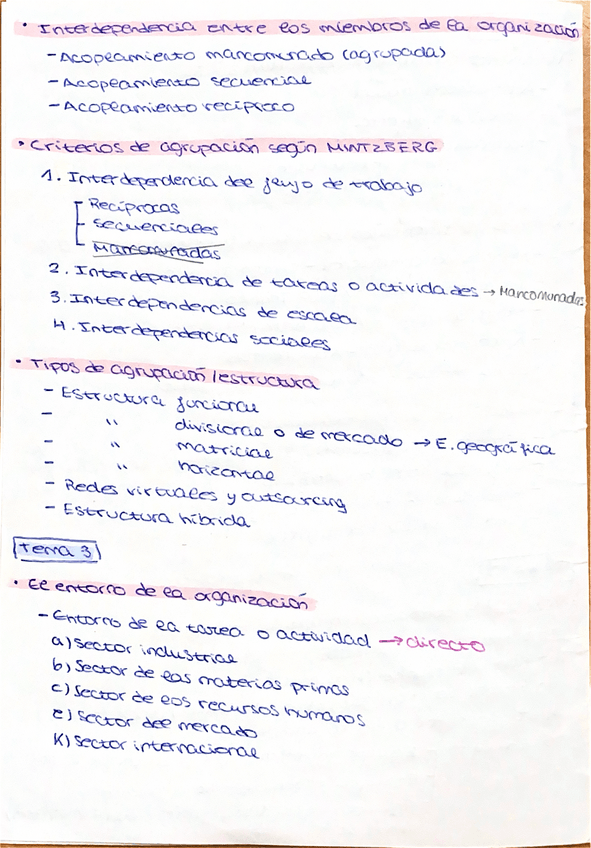 • Interdependencia entre los miembros de la organización
- Acoplamiento mancomunado (agrupadas)
- Acoplamiento secuencial
- Acoplamiento recíproco
• Criterios de agrupación según MINTZBERG
1. Interdependencia del flujo de trabajo
Recíprocas
Secuenciales
Mancomunadas
2. Interdependencia de tareas o actividades → Mancomunadas
3. Interdependencias de escala
4. Interdependencias sociales
• Tipos de agrupación / estructura
- Estructura funcional
- " divisional o de mercado → E. geográfica
- " matricial
- " horizontal
- Redes virtuales y outsorcing
- Estructura híbrida
Tema 3
• El entorno de la organización
- Entorno de la tarea o actividad → directo
a) Sector industrial
b) Sector de las materias primas
c) Sector de los recursos humanos
e) Sector del mercado
K) Sector internacional